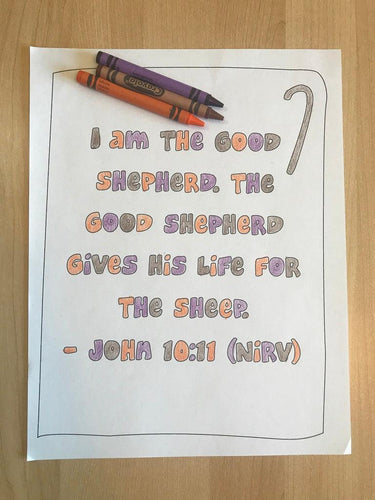 Crayola
I am the good
shepherd. The
good shepherd
gives his life for
the sheep.
- John 10:11 (NIRV)